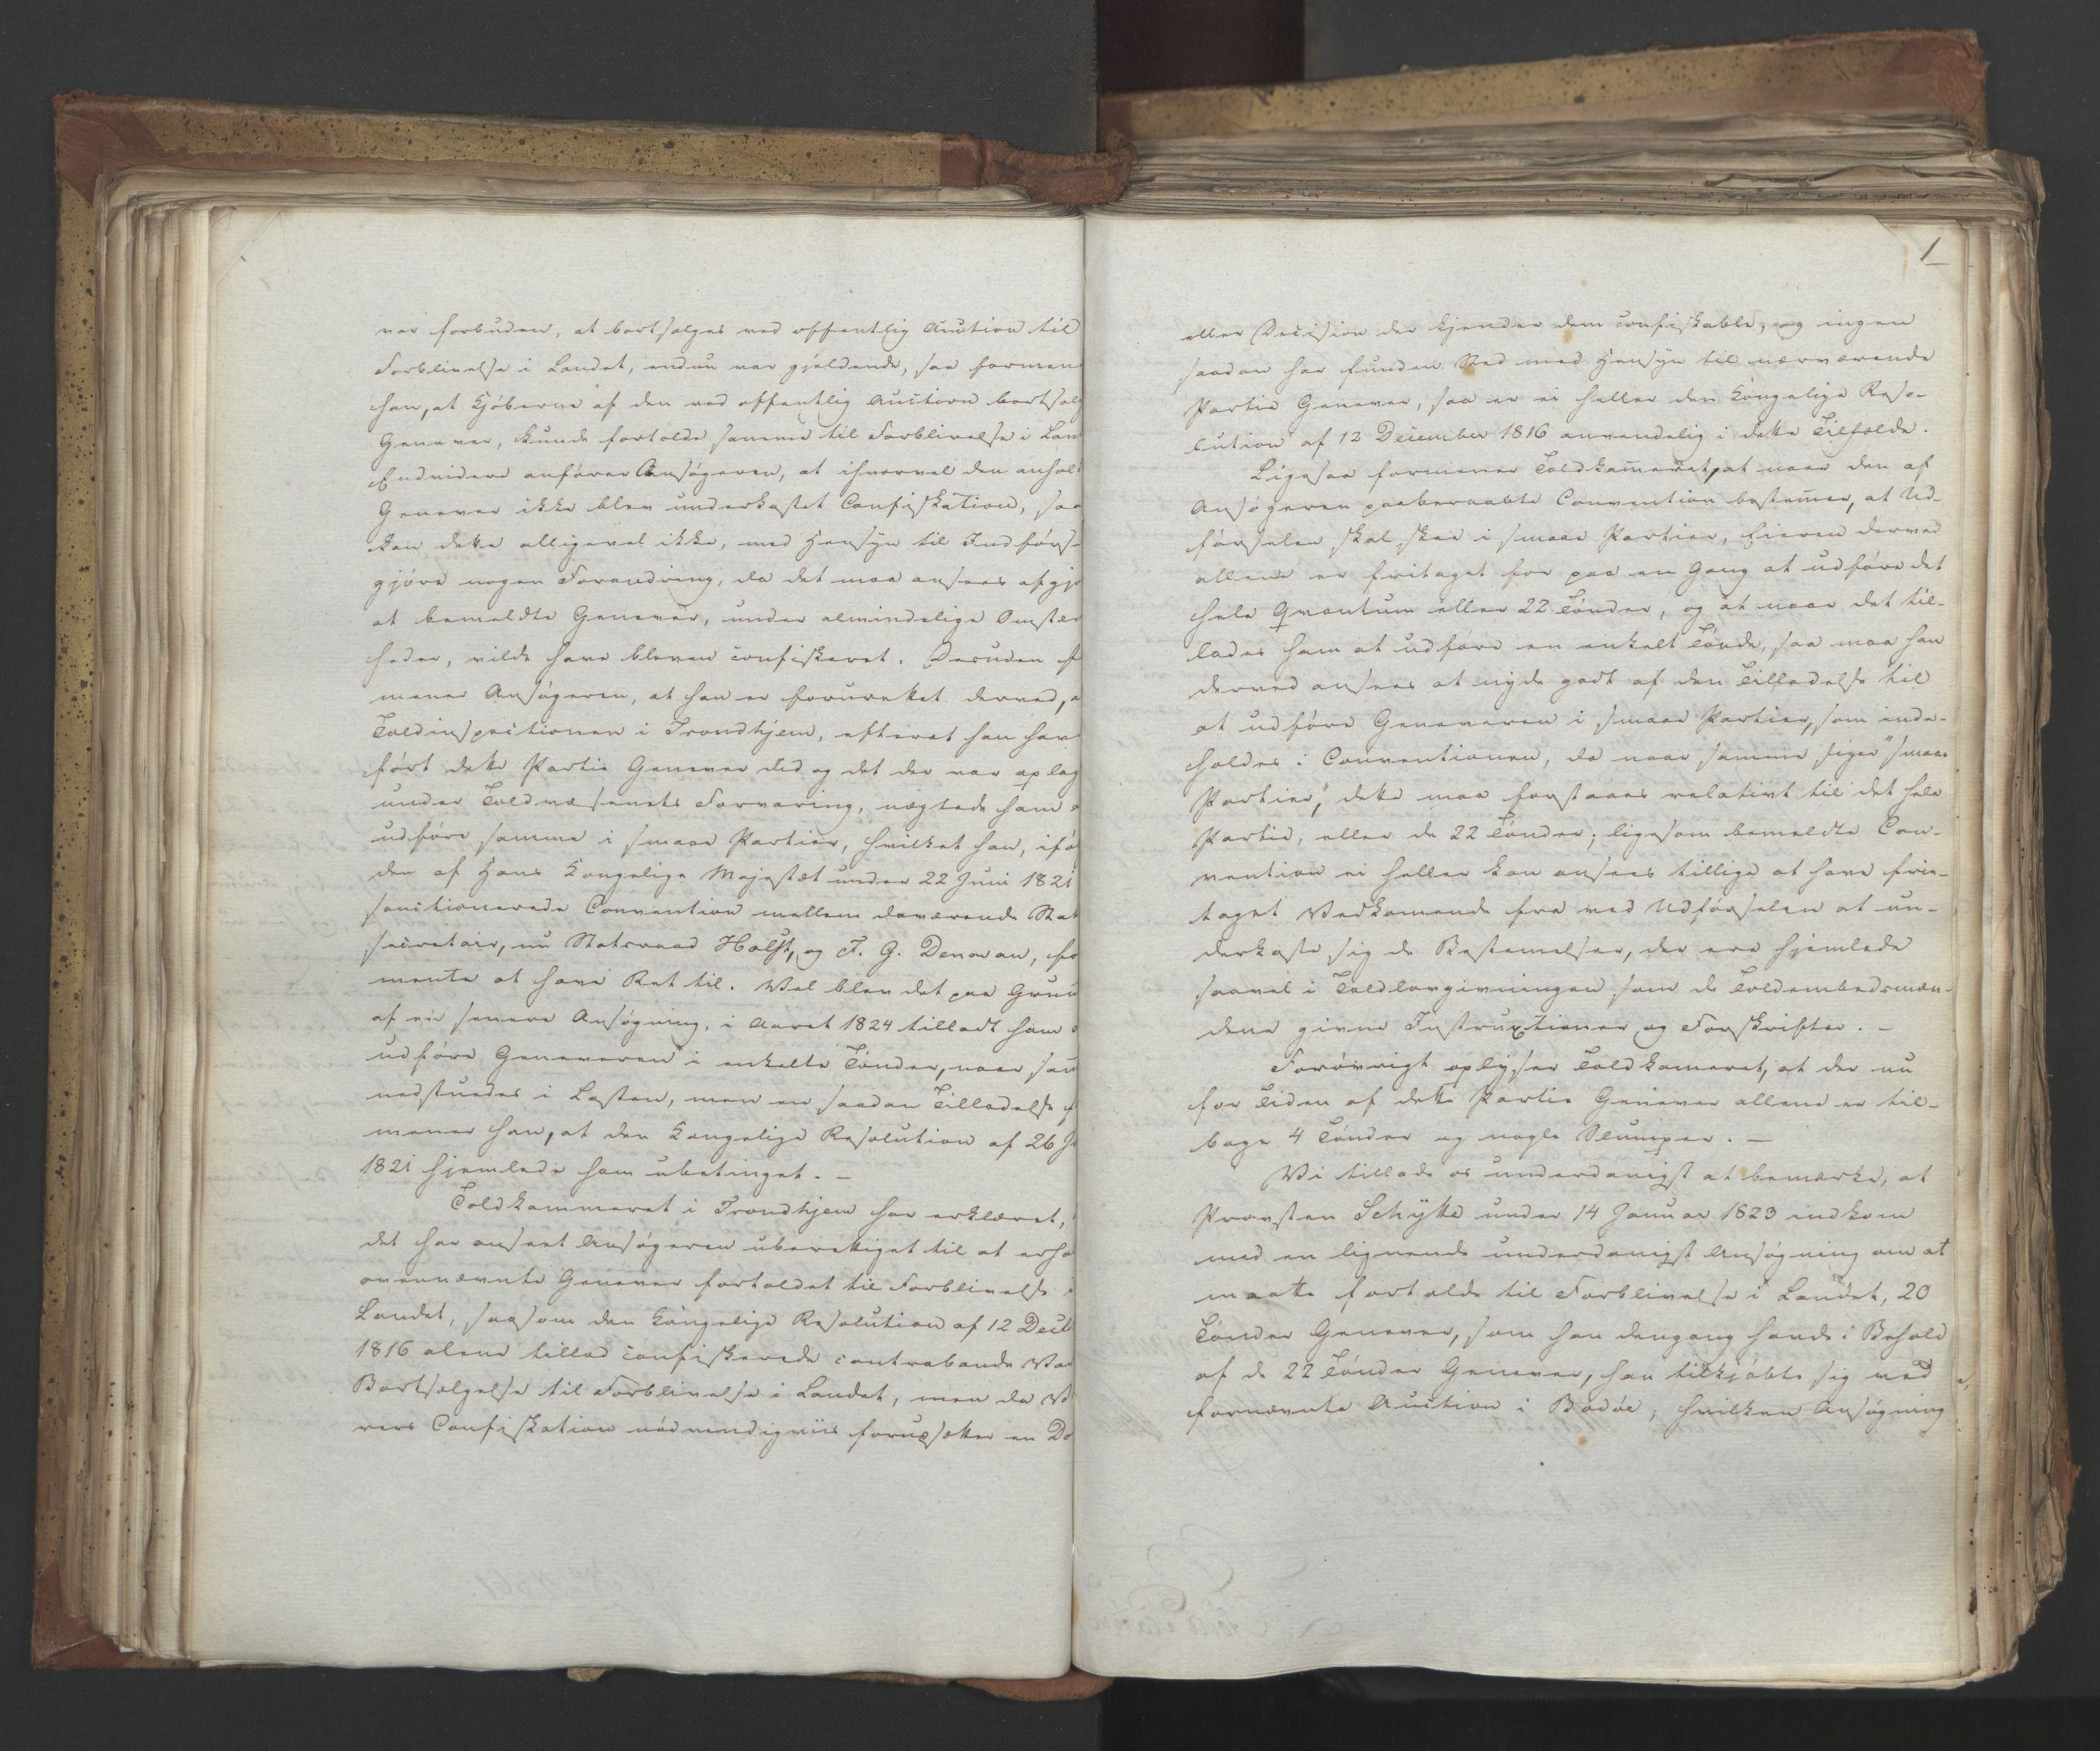 var forbuden, at bortsælges ved offentlig Auction til
Forblivelse i Landet, endnu var gjeldende, saa formen
han, at Kjøberne af den ved offentlig Auction bortsolg
Genever, kunde fortolde samme til Forblivelse i Lan
Endvidere anfører Ansøgeren, at ihvorvel den anhol
Genever ikke blev underkastet Confiskation, saa
kan dette alligevel ikke, med Hensyn til Indførs-
gjøre nogen Forandring, da det maa ansees afgjo
at bemeldte Genever, under almindelige Omstæn
heder, vilde have bleven confiskeret. Desuden f
mener Ansøgeren, at han er forurettet derved, a
Toldinspectionen i Trondhjem, efterat han hav
ført dette Partie Genever did og det der var oplag
under Toldvæsenets Forvaring, nægtede ham a
udføre samme i smaae Partier, hvilket han, ifø
den af Hans Kongelige Majestæt under 22 Juni 1821
sanctionerede Convention mellem daværende Stat
secretair, nu Statsraad Holst, og F. G. Denovan, fo
mente at have Ret til. Vel blev det paa Grun
af en senere Ansøgning, i Aaret 1824 tilladt ham a
udføre Geneveren i enkelte Tønder, naar sam
nedstuedes i Lasten, men en saadan Tilladelse f
mener han, at den Kongelige Resolution af 26 J
1821 hjemlede ham ubetinget. —
Toldkammeret i Trondhjem har erklæret,
det har anseet Ansøgeren uberettiget til at erho
ovennævnte Genever fortoldet til Forblivelse i
Landet, saasom den Kongelige Resolution af 12 Decb
1816 alene tillod confiskerede contrabande Va
Bortsælgelse til Forblivelse i Landet, men da V
rers Confiskation nødvendigviis forudsætter en Do
1
eller Decision der kjender dem confiskable, og ingen
saadan har funden Sted med Hensyn til nærværende
Partie Genever, saa er ei heller den Kongelige Reso-
lution af 12 December 1816 anvendelig i dette Tilfælde.
Ligesaa formener Toldkam̄eret, at naar den af
Ansøgeren paaberaabte Convention bestem̄er, at Ud-
førselen skal skee i smaae Partier, Eieren derved
allene er fritaget for paa en Gang at udføre det
hele Qvantum eller 22 Tønder, og at naar det til-
lades ham at udføre en enkelt Tønde, saa maa han
derved ansees at nyde godt af den Tilladelse til
at udføre Geneveren i smaae Partier, som inde-
holdes i Conventionen, da naar samme siger "smaae
Partier", dette maa forstaaes relativt til det hele
Partie, eller de 22 Tønder; ligesom bemeldte Con-
vention ei heller kan ansees tillige at have frie-
taget Vedkomende fra ved Udførselen at un-
derkaste sig de Bestemelser, der ere hjemlede
saavel i Toldlovgivningen som de Toldembedsmæn-
dene givne Instruxtioner og Forskrifter. —
Forøvrigt oplyser Toldkameret, at der nu
for Tiden af dette Partie Genever allene er til-
bage 4 Tønder og nogle Slumper. —
Vi tillade os underdanigst at bemærke, at
Provsten Schytte under 14 Januar 1823 indkom
med en lignende underdanigst Ansøgning om at
maatte fortolde til Forblivelse i Landet, 20
Tønder Genever, som han dengang havde i Behold
af de 22 Tønder Genever, han tilkjøbte sig ved
fornævnte Auction i Bodøe; hvilken Ansøgning